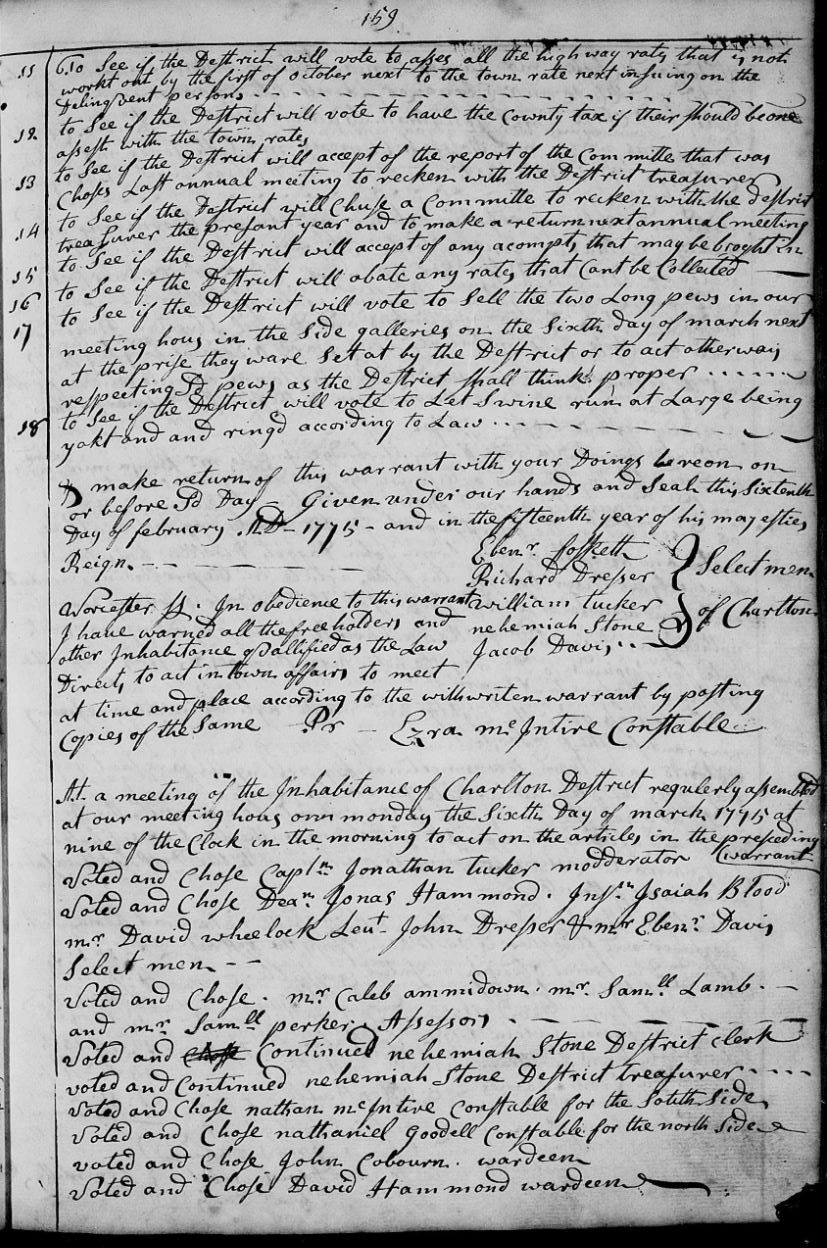 159
11 to See if the Destrict will vote to asses all the high way rats that is not
workt out by the first of October next to the town rate next insuing on the
Delinquent persons
12 to See if the Destrict will vote to have the County tax if their should be one
assest with the town rates
13 to See if the Destrict will accept of the report of the Committe that was
Chose Last annual meeting to recken with the Destrict treasurer
14 to See if the Destrict will Chuse a Committe to recken with the destrict
treasurer the present year and to make a return next annual meeting
15 to See if the Destrict will accept of any acompts that may be broght in
16 to See if the Destrict will abate any rates that Cant be Collected
17 to See if the Destrict will vote to Sell the two Long pews in our
meeting hous in the Side galleries on the Sixth day of march next
at the prise they ware Set at by the Destrict or to act otherwais
respecting Sd pews as the Destrict shall think proper
18 to See if the Destrict will vote to Let Swine run at Large being
yokt and and ringd according to Law
& make return of this warrant with your Doings hereon on
or before Sd Day - Given under our hands and Seals this Sixtenth
Day of february AD - 1775 - and in the fifteenth year of his majesties
Reign
Ebenr foskett
Richard Dresser
william tucker
nehemiah Stone
Jacob Davis
Select men
of Charlton
Worcester ss. In obedience to this warrant
I have warned all the freeholders and
other Inhabitance qallified as the Law
Directs to act in town affairs to meet
at time and place according to the withwriten warrant by posting
Copies of the Same Pr - Ezra mcIntire Constable
At a meeting of the Inhabitance of Charlton Destrict regulerly assembled
at our meeting hous onn monday the Sixth Day of march 1775 at
nine of the Clock in the morning to act on the articles in the preseding
warrant
Voted and Chose Captn Jonathan tucker modderator
Voted and Chose Dean Jonas Hammond. Insn Isaiah Blood
mr David wheelock Leut John Dresser & mr Ebenr Davis
Select men
Voted and Chose. mr Caleb ammidown. mr Samll Lamb.
and mr Samll perker Assessors
Voted and Continued nehemiah Stone Destrict clerk
voted and Continued nehemiah Stone Destrict treasurer
Voted and Chose nathan mcIntire Constable for the South Side
Voted and Chose nathaniel Goodell Constable for the north Side
voted and Chose John Cobourn. wardeen
Voted and Chose David Hammond wardeen